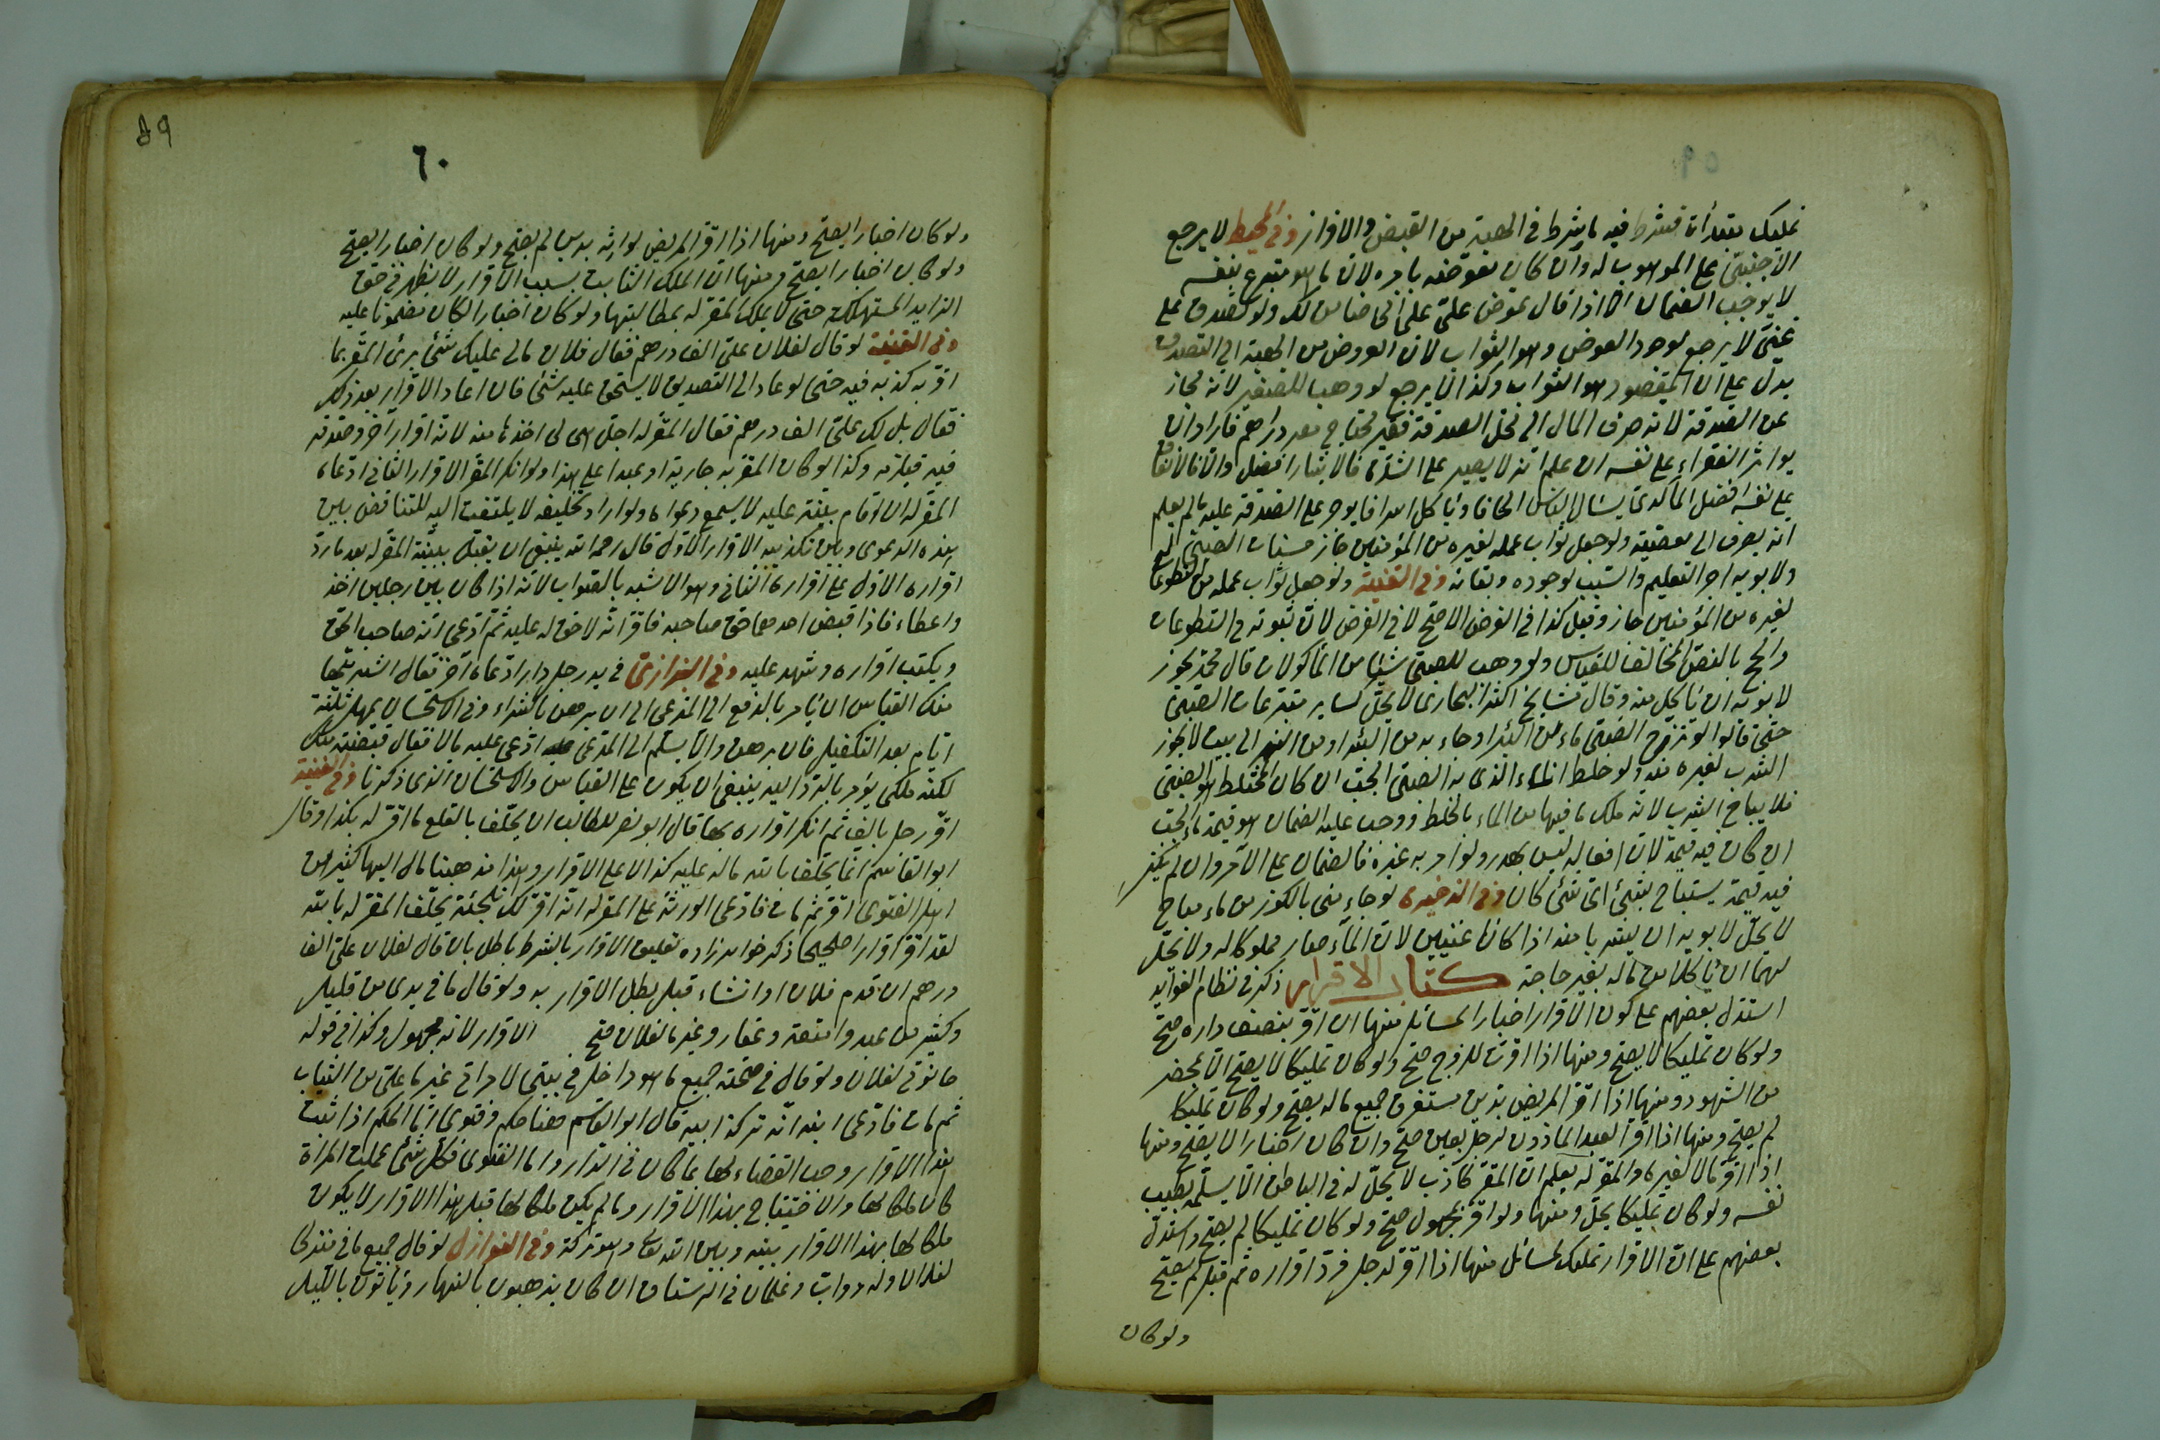 ٥٩
تمليك مبتدأة فيشترط فيه ما يشترط في الهبة من القبض والافراز وفي المحيط لا يرجع
الاجنبي على الموهوب له وان كان تعوضه بامره لان ما هو متبرع بنفسه
لا يوجب الضمان الا اذا قال عوض على اني ضامن لك ولو تصدق على
غني لا يرجع لوجود العوض وهو الثواب لان العروض من الهبة الى التصدق
يدل على ان المقصود هو الثواب وكذا لا يرجع لو وهب للفقير لانه مجاز
عن الصدقة لانه صرف المال الى محل الصدقة فقير محتاج معه دراهم فاراد ان
يؤاثر الفقراء على نفسه ان علم انه لا يصبر على الشدة فالايثار افضل والا فالانفاق
على نفسه افضل المكدي يسأل الناس الحافا ويأكل اسرافا يوجر على الصدقة عليه ما لم يعلم
انه يصرف الى معصيته ولو جعل ثواب عمله لغيره من المؤمنين جاز حسنات الصبي له
ولابويه اجر التعليم والسبب لوجوده وبقائه وفي القنية ولو جعل ثواب عمله من التطوعات
لغيره من المؤمنين جاز وقيل كذا في الفرض الاصح لا في الفرض لان ثبوته في التطوعات
والحج بالنص المخالف للقياس ولو وهب للصبي شيئا من المأكولات قال محمد يجوز
لابويه ان يأكل منه وقال مشايخ اكثر البخارى لا يحل كسائر متبرعات الصبي
حتى قالوا لو تزوج الصبي ماء من البئر او جاء به من البئر او من النهر الى بيت لا يجوز
الشرب لغيره منه ولو خلط الماء الذي به الصبي الجب ان كان المختلط هو الصبي
فلا يباح الشرب لانه ملك ما فيها من الماء بالخلط ووجب عليه الضمان هو قيمة ماء الجب
ان كان فيه قيمة لان افعاله ليس بهدر ولو امر به غيره فالضمان على الآمر وان لم يكن
فيه قيمة يستباح بشئ اى شئ كان وفي الذخيرة لو جاء صبي بالكوز من ماء مباح
لا يحل لابويه ان يشربا منه اذا كانا غنيين لان الماء صار مملوكا له ولا يحل
لهما ان يأكلا من ماله بغير حاجة كتاب الاقرار ذكر في نظام الفوائد
استدل بعضهم على كون الاقرار اخبارا لمسائل منها ان اقر بنصف داره صح
ولو كان تمليكا لا يصح ومنها اذا اقرت للزوج صح ولو كان تمليكا لا يصح الا بمحضر
من الشهود ومنها اذا اقر المريض بدين مستغرق جميع ماله يصح ولو كان تمليكا
لم يصح ومنها اذا اقر العبد الماذون لرجل بعين صح وان كان اخبارا لا يصح ومنها
اذا اقر مالا لغيره والمقر له يعلم ان المقر كاذب لا يحل له في الباطن الا يسلمه بطيب
نفسه ولو كان تمليكا يحل ومنها ولو اقر بمجهول صح ولو كان تمليكا لم يصح واستدل
بعضهم على ان الاقرار تمليك لمسائل منها اذا اقر لرجل فرد اقراره ثم قبل لم يصح
ولو كان
٥٩
٦٠
ولو كان اخبارا يصح ومنها اذا اقر المريض لوارثه بدين لم يصح ولو كان اخبارا يصح
ولو كان اخبارا يصح ومنها ان الملك الثابت بسبب الاقرار لا يظهر في حق
الزايد المستهلكة حتى لا يملك المقر له بمطالبتها ولو كان اخبارا لكان مضمونا عليه
وفي القنية لو قال لفلان على الف درهم فقال فلان مالي عليك شئ برئ المقر بما
اقر به كذبه فيه حتى لو عاد الى التصديق لا يستحق عليه شئ فان اعاد الاقرار بعد ذلك
فقال بل لك على الف درهم فقال المقر له اجل هى لى اخذها منه لانه اقرار آخر وصدقه
فيه قيلزمه وكذا لو كان المقر به جارية او عبدا على هذا ولو انكر المقر الاقرار الثاني ادعاه
المقر له ان اقام بينة عليه لا يسمع دعواه ولو اراد تحليفه لا يلتفت اليه للتناقض بين
هذه الدعوى وبين تكذيبه الاقرار الاول قال رحمه الله ينبغي ان يقبل ببينة المقر له بعد ما رد
اقراره الاول على اقراره الثاني وهو الاشبه بالصواب لانه اذا كان بين رجلين اخذ
واعطاء فاذا قبض احدهما حق صاحبه فاقر انه لا حق له عليه ثم ادعى انه صاحب الحق
ويكتب اقراره وشهد عليه وفي البزازى في يد رجل دار ادعاه آخر فقال اشتريتها
منك القياس ان يأمر بالدفع الى المدعى الى ان يبرهن بالشراء وفي الاستحسان يمهل ثلثة
ايام بعد التكفيل فان برهن والا يسلم الى المدعى ادعى عليه مالا فقال قبضته منك
لكنه ملكي يؤمر بالرد اليه ينبغي ان يكون على القياس والاستحسان الذى ذكرنا وفي القنية
اقر رجل بالف ثم انكر اقراره بها قال ابو نصر للطالب ان يحلف بالقلع ما اقر له بكذا وقال
ابو القاسم انما يحلف بالله ماله عليه كذا لا على الاقرار وهذا مذهبنا مال اليها كثير من
اهل الفتوى اقر ثم مات فادعى الورثة على المقر له انه اقر لك تلجئة يحلف المقر له بالله
لقد اقر اقرارا صحيحا ذكر خواهر زاده تعليق الاقرار بالشرط باطل بان قال لفلان على الف
درهم ان قدم فلان او انشاء قبل بطل الاقرار به ولو قال ما في يدى من قليل
وكثير من عبد وامتعة وعقار وغيرها لفلان صح الاقرار لانه مجهول وكذا في قوله
حانوتي لفلان ولو قال في صحته جميع ما هو داخل في بيتي لامراتي غير ما على من الثياب
ثم مات فادعى ابنه انه تركة ابيه قال ابو القاسم ههنا حكم وفتوى اما الحكم اذا ثبت
هذا الاقرار وجب القضاء لها بما كان في الدار واما الفتوى فكل شئ عملت المرأة
كان ملكا لها والاختيتاج بهذا الاقرار وما لم يكن ملكا لها قبل هذا الاقرار لا يكون
ملكا لها بهذا الاقرار بينه وبين الله تعالى وهو تركة وفي النوازل لو قال جميع ما في منزلي
لفلان وله دواب وغلمان في الرستاق ان كان يذهبون بالنهار ويأتون بالليل